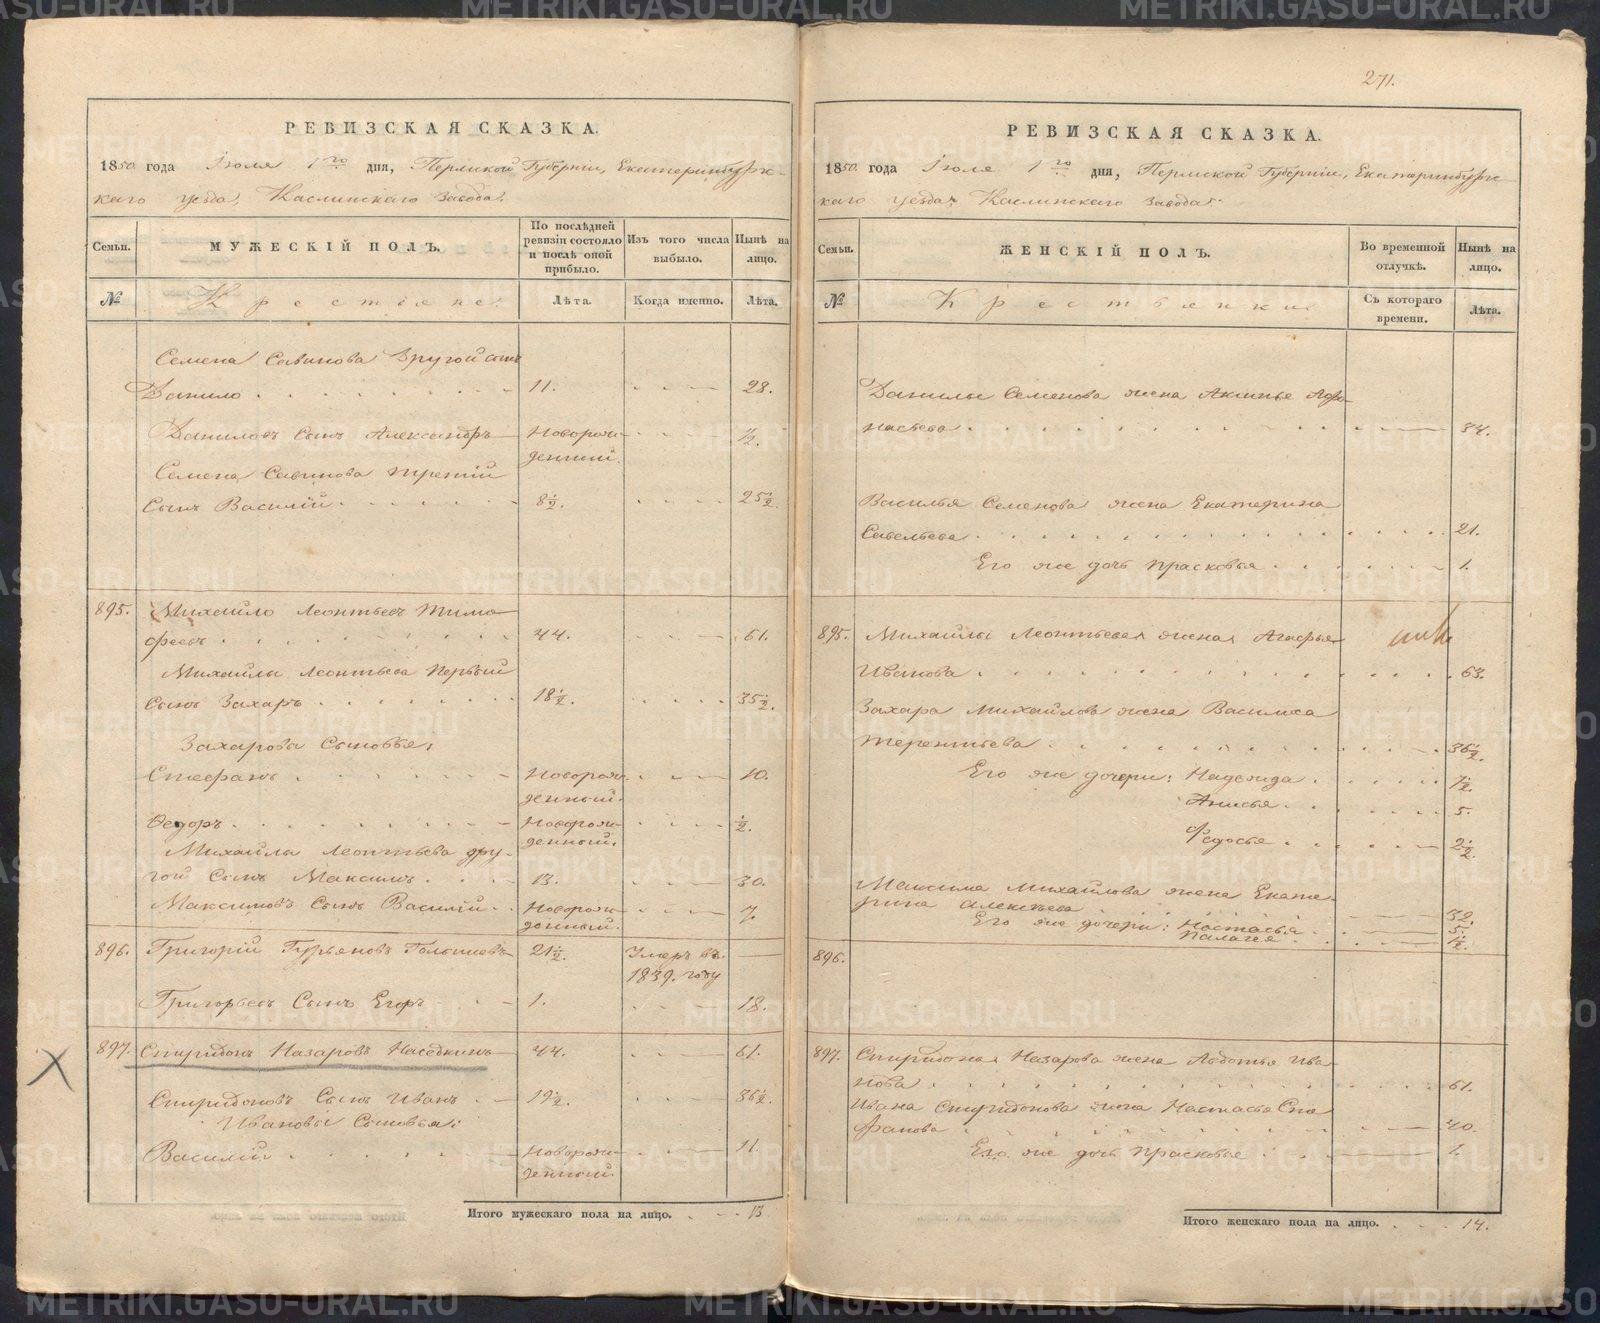 271.
РЕВИЗСКАЯ СКАЗКА.
1850 года Іюля 1го дня, Пермской Губерніи, Екатеринбургс-
каго уезда, Каслинскаго завода.
Семьи.
МУЖЕСКІЙ ПОЛЪ.
По последней ревизіи состояло и после оной прибыло.
Изъ того числа выбыло.
Ныне на лицо.
№
Крестьяне.
Лета.
Когда именно.
Лета.
Семена Савинова Другой сынъ
Данило 11. 28.
Даниловъ Сынъ Александръ Новорож-денный. ½.
Семена Савинова третій
Сынъ Василій 8½. 25½.
895. Михаило Леонтьевъ Тимо
феевъ 44. 61.
Михаилы Леонтьева Первый
Сынъ Захаръ 18½. 35½.
Захаровы Сыновья:
Стефанъ Новорож-денный. 10.
Федоръ Новорож-денный. ½.
Михаилы Леонтьева дру-
гой Сынъ Максимъ 13. 30.
Максимовъ Сынъ Василій Новорож-денный. 7.
896. Григорій Гурьяновъ 21½. Умеръ въ 1839. году
Григорьевъ Сынъ Егоръ 1. 18.
897. Спиридонъ Назаровъ Наседкинъ 44. 61.
Спиридоновъ Сынъ Иванъ 19½. 36½.
Ивановы Сыновья:
Василій Новорож-денный. 11.
Итого мужескаго пола на лицо. 13
РЕВИЗСКАЯ СКАЗКА.
1850 года Іюля 1го дня, Пермской Губерніи, Екатеринбургс-
каго уезда Каслинскаго завода.
Семьи.
ЖЕНСКІЙ ПОЛЪ.
Во временной отлучкѣ.
Ныне на лицо.
№
Крестьянки.
Съ котораго времени.
Лета.
Данилы Семенова жена Аксинье Афо-
насьева 34.
Василья Семенова жена Екатерина
Савельева 21.
Его же дочь Прасковья 1.
895. Михаилы Леонтьева жена Агафья
Иванова 63.
Захара Михайлова жена Василиса
Терентьева 36½.
Его же дочери: Надежда 7½.
Анисья 5.
Федосья 2½.
Максима Михайлова жена Екате-
рина Алексеева 32.
Его же дочери: Настасья 5.
Палагея 1½.
896.
897. Спиридона Назарова жена Авдотья Ива
нова 61.
Ивана Спиридонова жена Настасья
40.
Его же дочь Прасковья 1.
Итого женскаго пола на лицо. 14.
METRIKI.GASO-URAL.RU